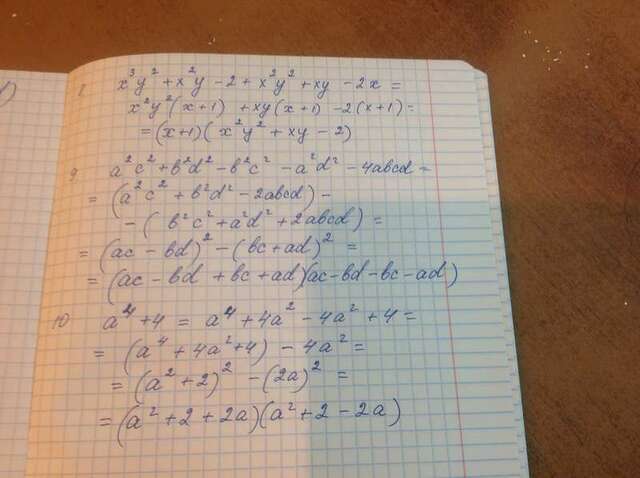 x³y² + x²y - 2 + x²y² + xy - 2x =
x²y²(x+1) + xy(x+1) - 2(x+1) =
= (x+1)(x²y² + xy - 2)
9 a²c² + b²d² - b²c² - a²d² - 4abcd =
= (a²c² + b²d² - 2abcd) -
- (b²c² + a²d² + 2abcd) =
= (ac - bd)² - (bc + ad)² =
= (ac - bd + bc + ad)(ac - bd - bc - ad)
10 a⁴ + 4 = a⁴ + 4a² - 4a² + 4 =
= (a⁴ + 4a² + 4) - 4a² =
= (a² + 2)² - (2a)² =
= (a² + 2 + 2a)(a² + 2 - 2a)